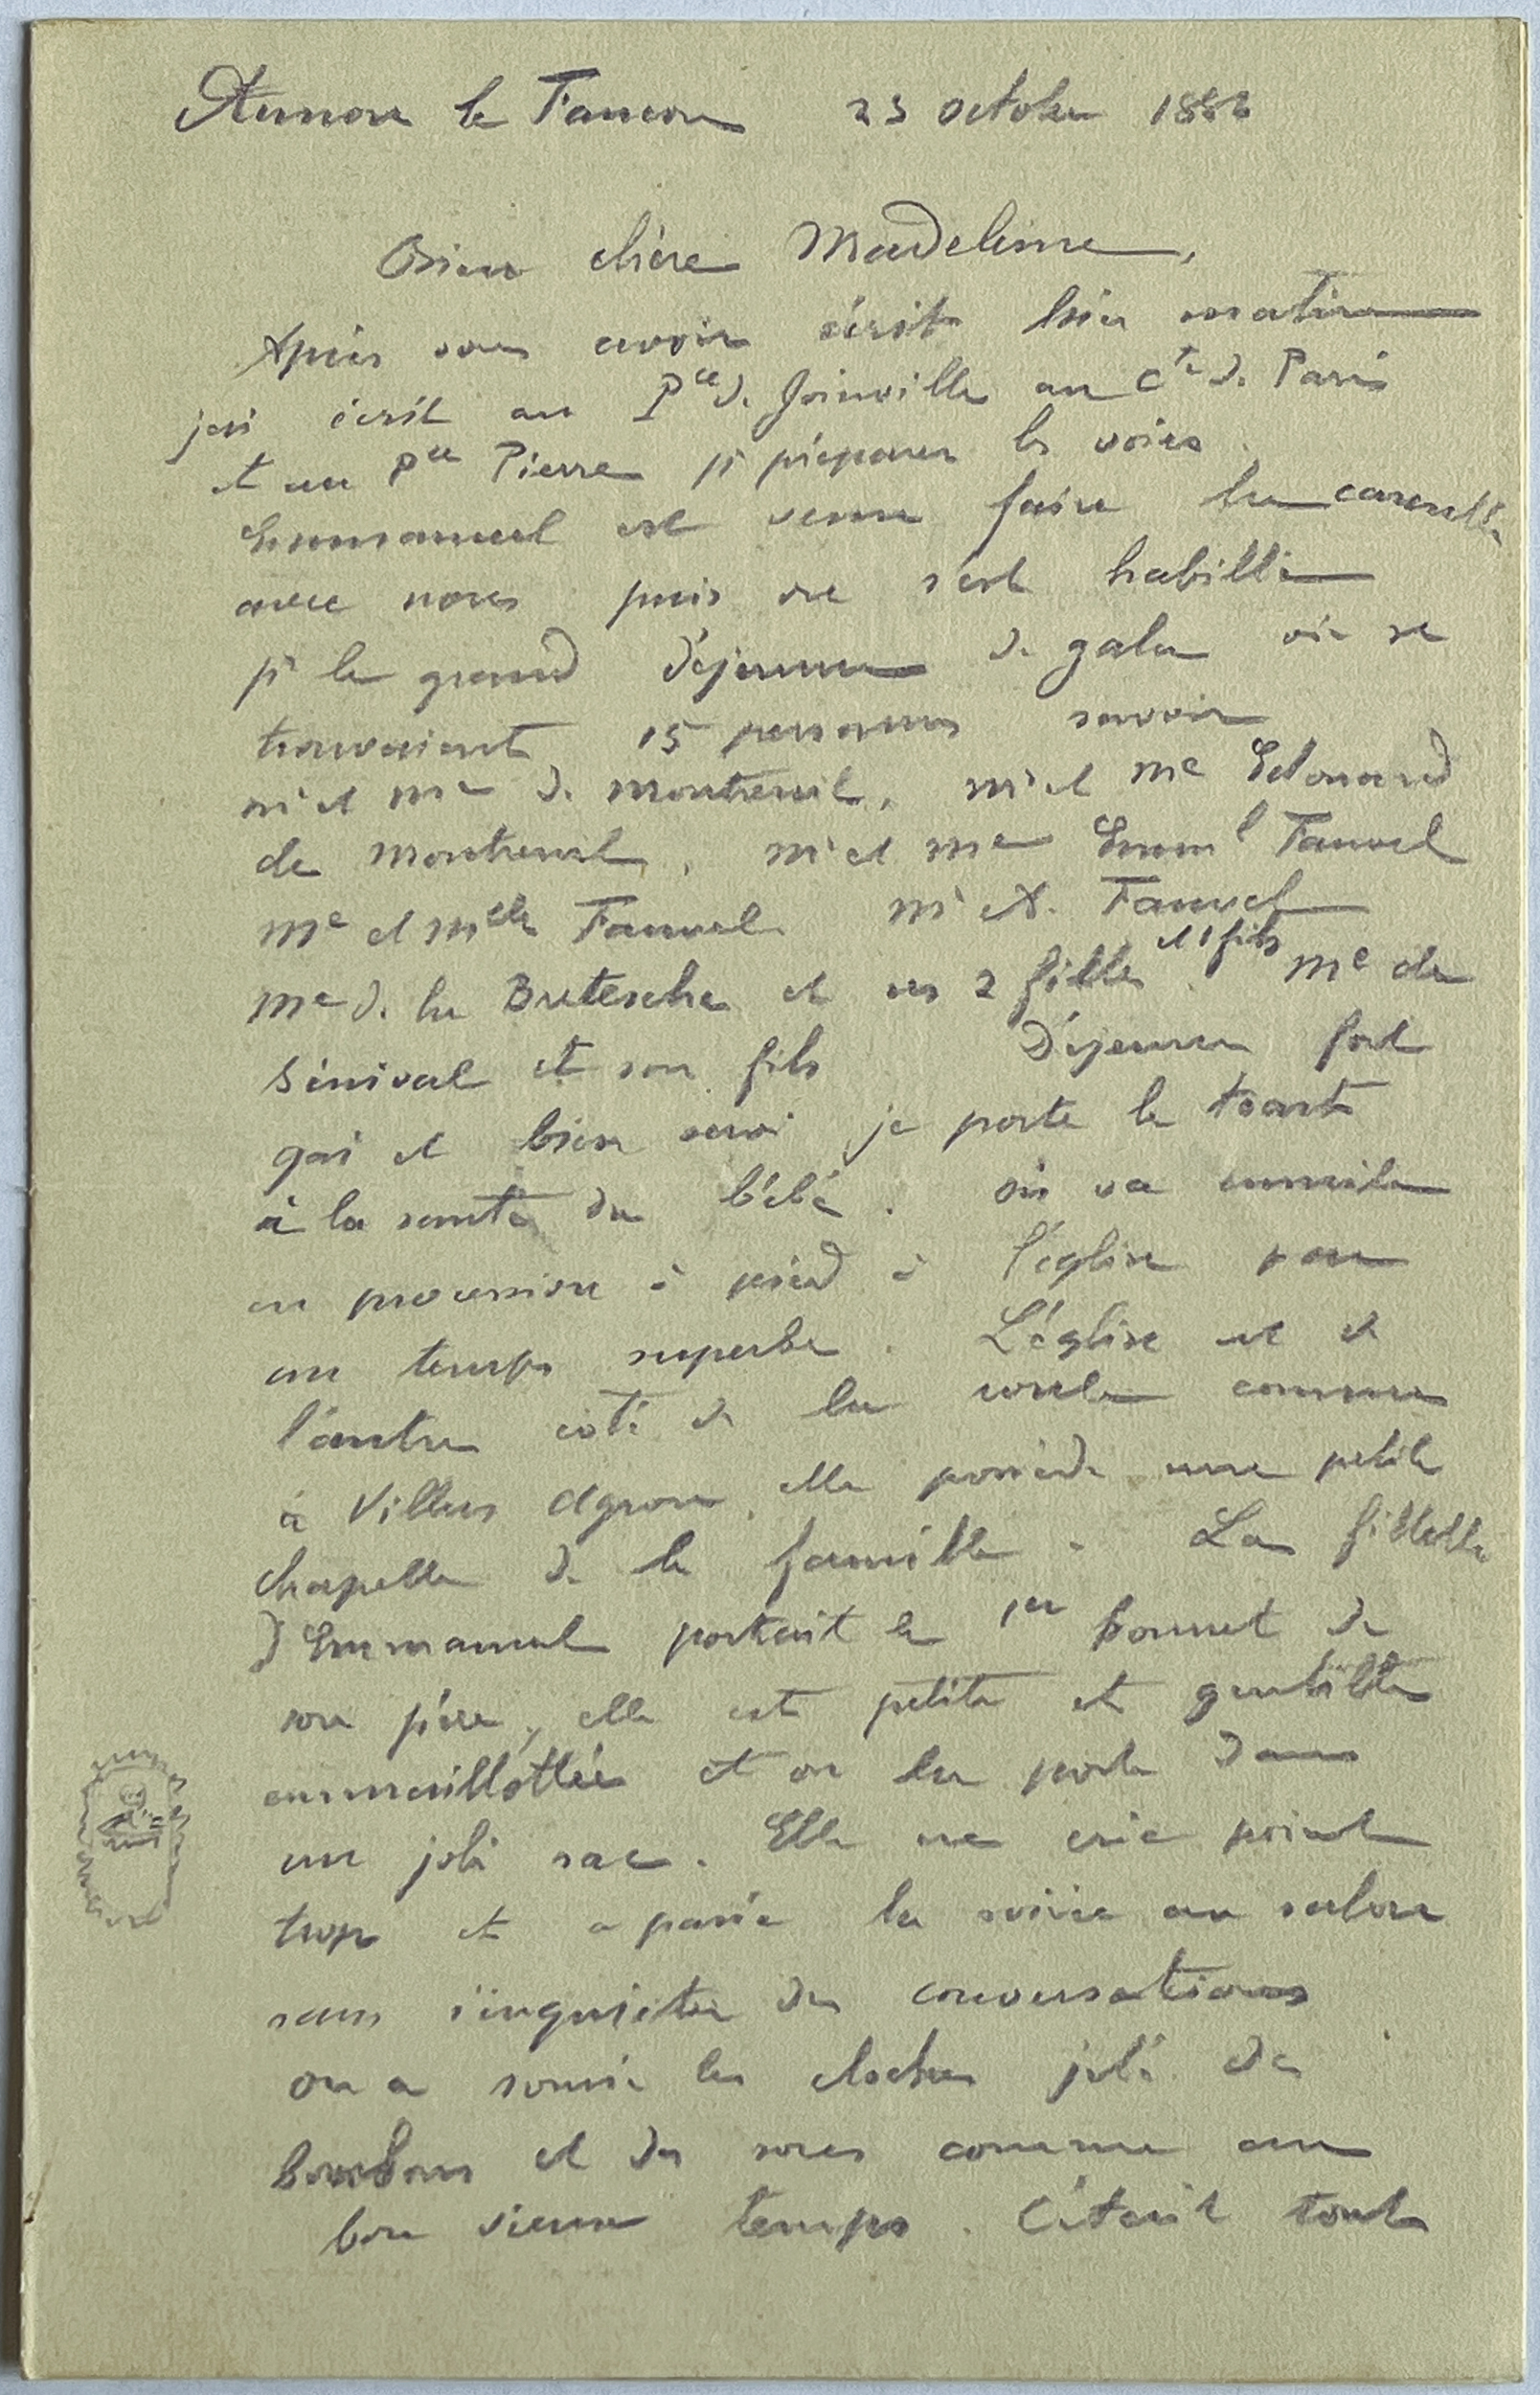 Aunou le Faucon 23 octobre 1886
Bien chère Madeleine,
Après vous avoir écrit hier matin
j'ai écrit au Pce de Joinville au Cte de Paris
et au Pce Pierre pr préparer les voies.
Emmanuel est venu faire la causette
avec nous puis on s'est habillé
pr le grand déjeuner de gala où se
trouvaient 15 personnes savoir
mr et me de Montreuil, mr et me Edouard
de Montreuil, mr et me Emmel Fauvel
me et melle Fauvel mr A. Fauvel
me de la Bretesche et ses 2 filles et 1 fils. me de
Sénival et son fils Déjeuner fort
gai et bien servi je porte le toast
à la santé du bébé. on va ensuite
en procession à pied à l'église par
un temps superbe. L'église est de
l'autre côté de la route comme
à Villers Agron, elle possède une petite
chapelle de la famille. La fillette
d'Emmanuel portait le 1er bonnet de
son père, elle est petite et gentille
emmaillottée et on la porte dans
un joli sac. Elle ne crie point
trop et a passé la soirée au salon
sans s'inquiéter des conversations
on a sonné les cloches jeté des
bonbons et des sous comme au
bon vieux temps. C'était tout